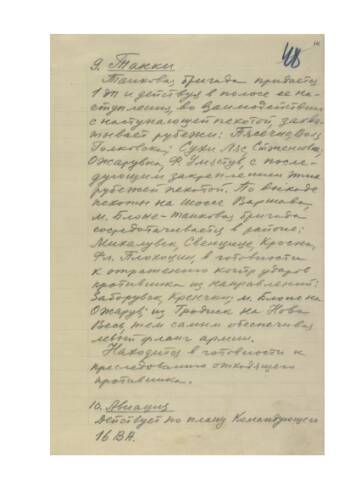 48
9. Танки
Танковая бригада придается
1 ДП и действуя в полосе ее на-
ступления во взаимодействии
с наступающей пехотой, захва-
тывает рубежи:
с после-
дующим закреплением этих
рубежей пехотой. По выходе
пехоты на шоссе Варшава,
м. Блоне - танковая бригада
сосредотачивается в районе:
в готовности
к отражению контр ударов
противника из направлений:
м. Блоне на
Ожарув; из Гродиск на Нова
Весь, тем самым обеспечивая
левый фланг армии.
Находится в готовности к
преследованию отходящего
противника.
10. Авиация
Действует по плану Командующего
16 ВА.